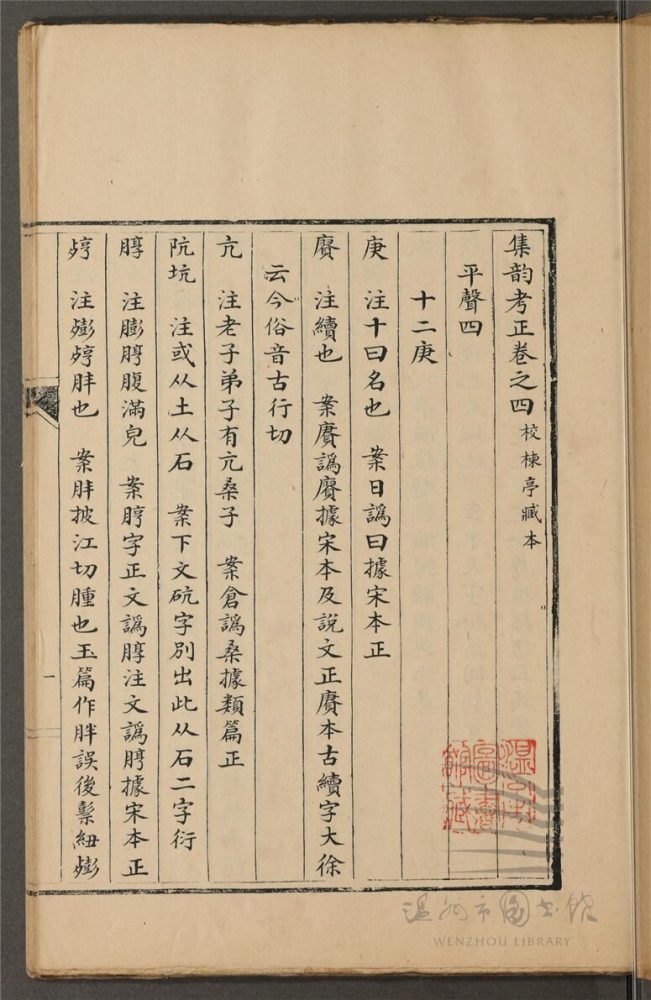 集韵考正卷之四 校楝亭臧本
平聲四
十二庚
庚 注十曰名也 案日譌曰據宋本正
賡 注續也 案賡譌賡據宋本及説文正賡本古續字大徐
云今俗音古行切
亢 注老子弟子有亢桑子 案倉譌桑據類篇正
阬坑 注或从土从石 案下文砊字別出此从石二字衍
脝 注膨脝腹滿皃 案脝字正文譌朜注文譌脝據宋本正
㱶 注㱶胖也 案胖披江切腫也玉篇作胖誤後䋽紐
一
溫州市圖書館藏
温州市图书馆
WENZHOU LIBRARY